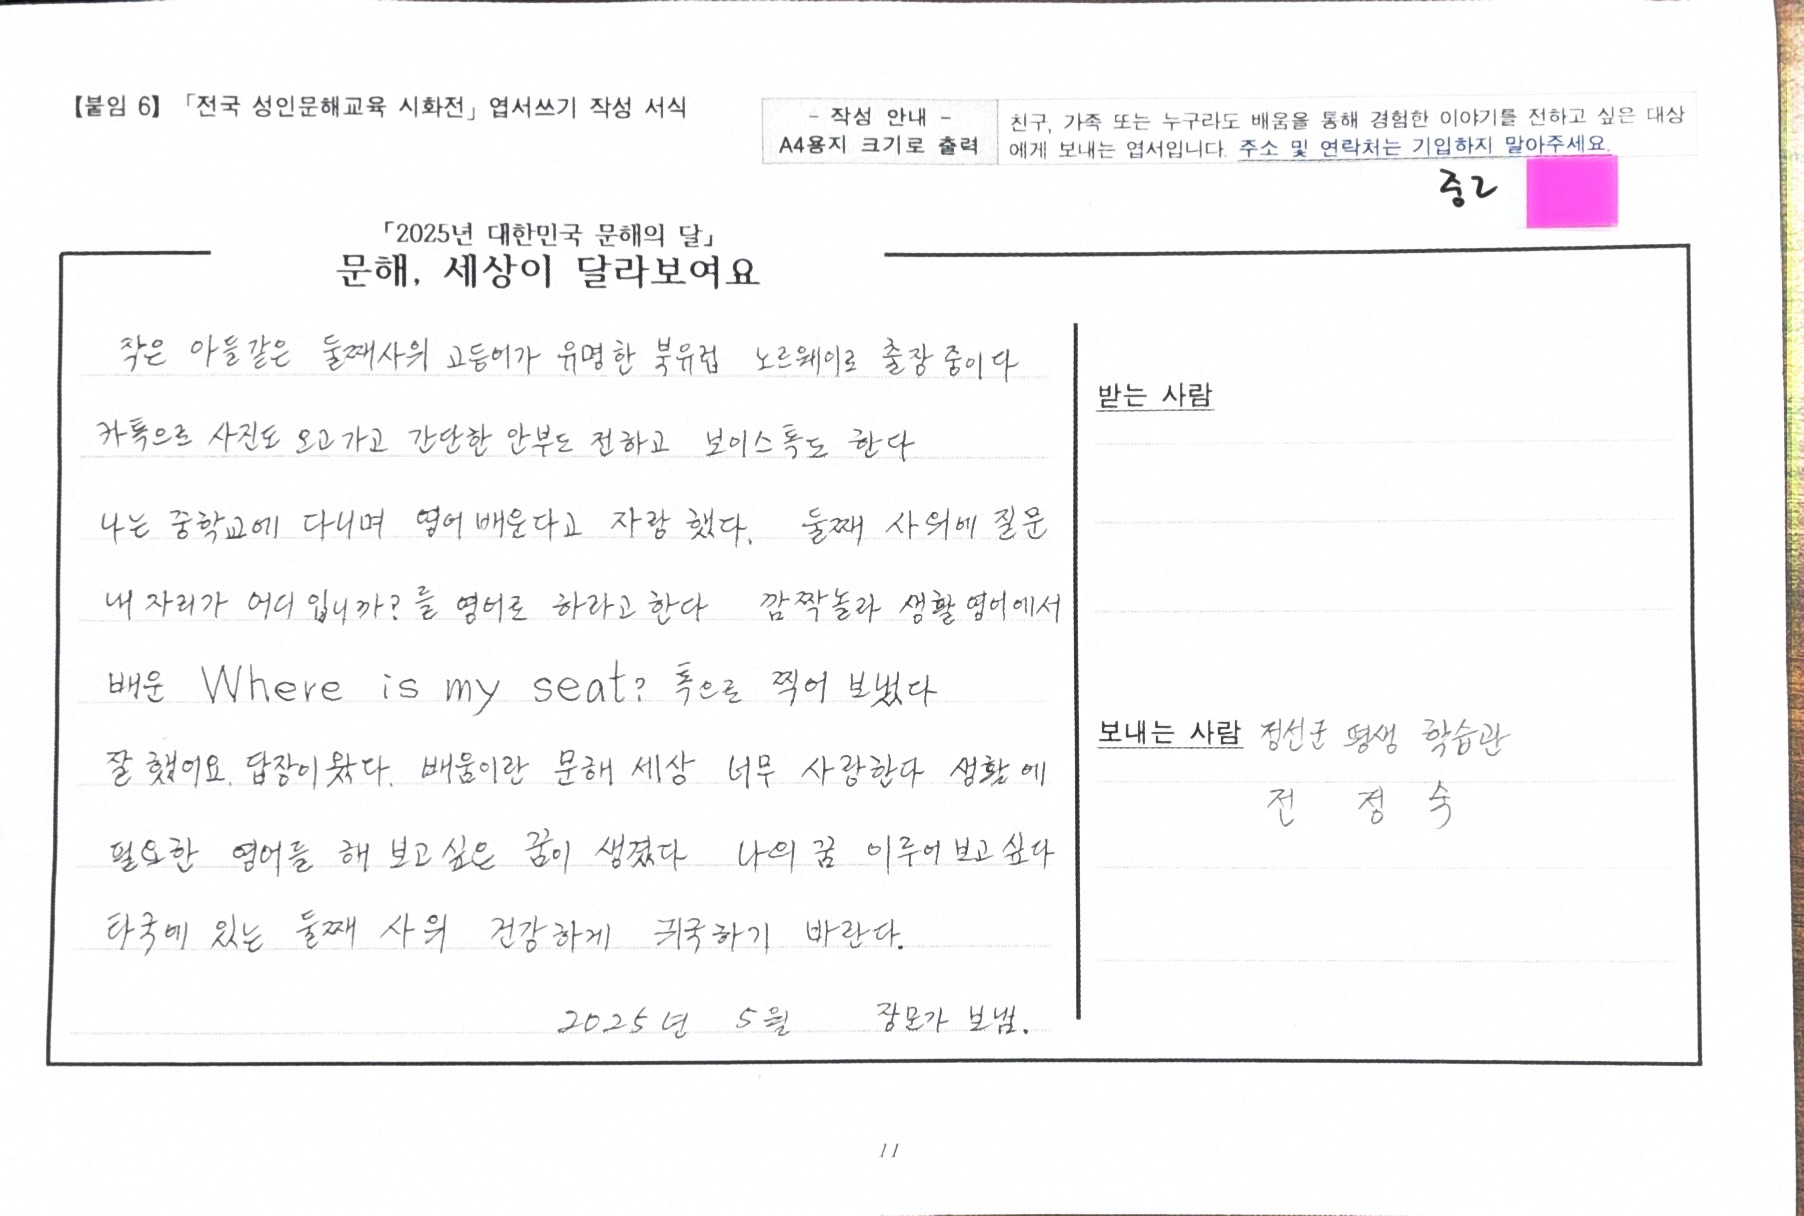 【붙임 6】 「전국 성인문해교육 시화전」 엽서쓰기 작성 서식
- 작성 안내 -
A4용지 크기로 출력
친구, 가족 또는 누구라도 배움을 통해 경험한 이야기를 전하고 싶은 대상
에게 보내는 엽서입니다. 주소 및 연락처는 기입하지 말아주세요.
중2
「2025년 대한민국 문해의 달」
문해, 세상이 달라보여요
작은 아들같은 둘째사위 고등어가 유명한 북유럽 노르웨이로 출장 중이다
카톡으로 사진도 오고가고 간단한 안부도 전하고 보이스톡도 한다
나는 중학교에 다니며 영어배운다고 자랑 했다. 둘째 사위에 질문
내 자리가 어디입니까? 를 영어로 하라고한다 깜짝놀라 생활영어에서
배운 Where is my seat? 톡으로 찍어 보냈다
잘 했어요. 답장이왔다. 배움이란 문해 세상 너무 사랑한다 생활에
필요한 영어를 해 보고싶은 꿈이 생겼다 나의 꿈 이루어보고싶다
타국에 있는 둘째 사위 건강하게 귀국하기 바란다.
2025년 5월 장모가 보냄.
받는 사람
보내는 사람 정선군 평생 학습관
전 정 숙
11